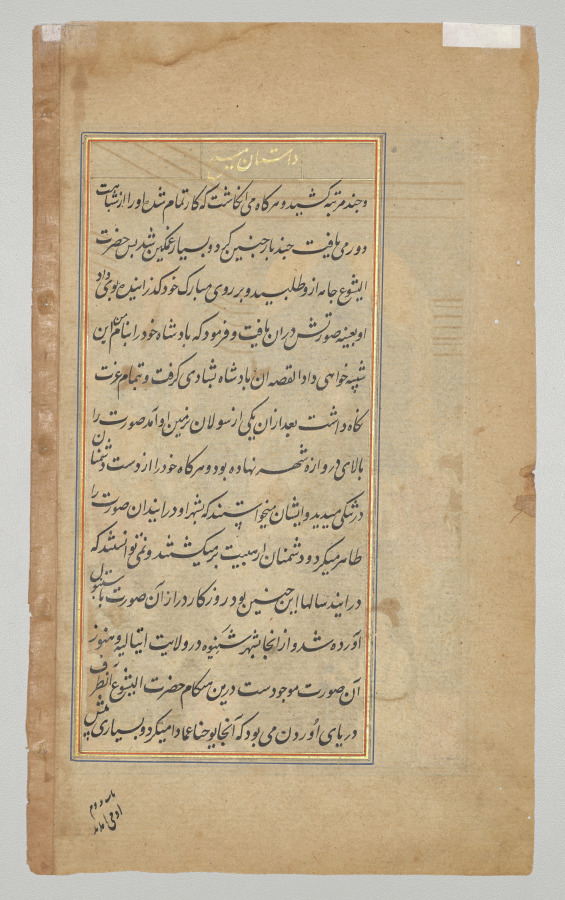 داستان مسیح
و چند مرتبه کشید و هرکاه می انکاشت که کار تمام شد او را از شباهت
دور می یافت چند بار چنین کرد و بسیار غمکین شد پس حضرت
الیشوع جامه ازو طلبید و بر روی مبارک خود کذرانیده بوی داد
او بعینه صورتش دران یافت و فرمود که بادشاه خود را بنام من این
شبیه خواهی داد القصه ان بادشاه بشادی کرفت و بتمام عزت
نکاه داشت بعد ازان یکی از رسولان بزمین او آمد صورت را
بالای دروازه شهر نهاده بود و هرکاه خود را از دست دشمنان
در تنکی میدید و ایشان میخواستند که بشهر او درایند ان صورت را
ظاهر میکرد و دشمنان از هیبت برمیکشتند و نمی توانستند که
درایند سالها این چنین بود روزکار دراز آن صورت باستنبول
آورده شد و از انجا بشهر شینوه در ولایت ایتالیه و هنوز
آن صورت موجودست درین هنکام حضرت الیشوع آنطرف
دریای اُوردن می بود که آنجا یوحنا عمادا میکرد و بسیاری پیش